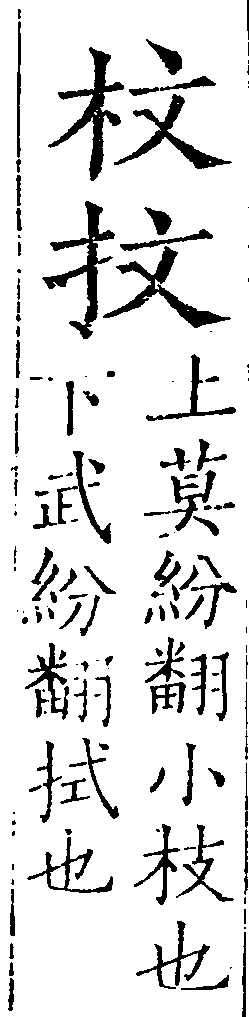 杦抆
上莫紛翻小枝也
下武紛翻拭也